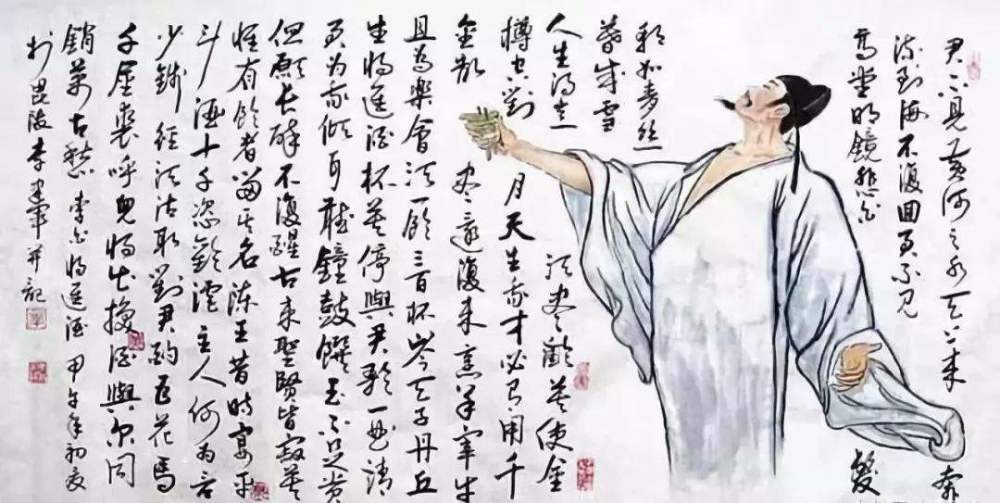 君不見黄河之水天上来奔
流到海不復回君不見
高堂明鏡悲白髮
朝如青丝
暮成雪
人生得意須盡歡莫使金
樽空對月天生我才必有用千
金散盡還復来烹羊宰牛
且為樂會須一飲三百杯岑夫子丹丘
生將進酒杯莫停與君歌一曲請
君为我傾耳聽鐘鼓饌玉不足贵
但願长醉不復醒古来聖賢皆寂莫
惟有飲者留其名陈王昔時宴平
斗酒十千恣歡谑主人何为言
少錢径須沽取對君酌五花馬
千金裘呼兒將出换酒與尔同
銷萬古愁李白将進酒甲午年初夏
於毘陵李并記